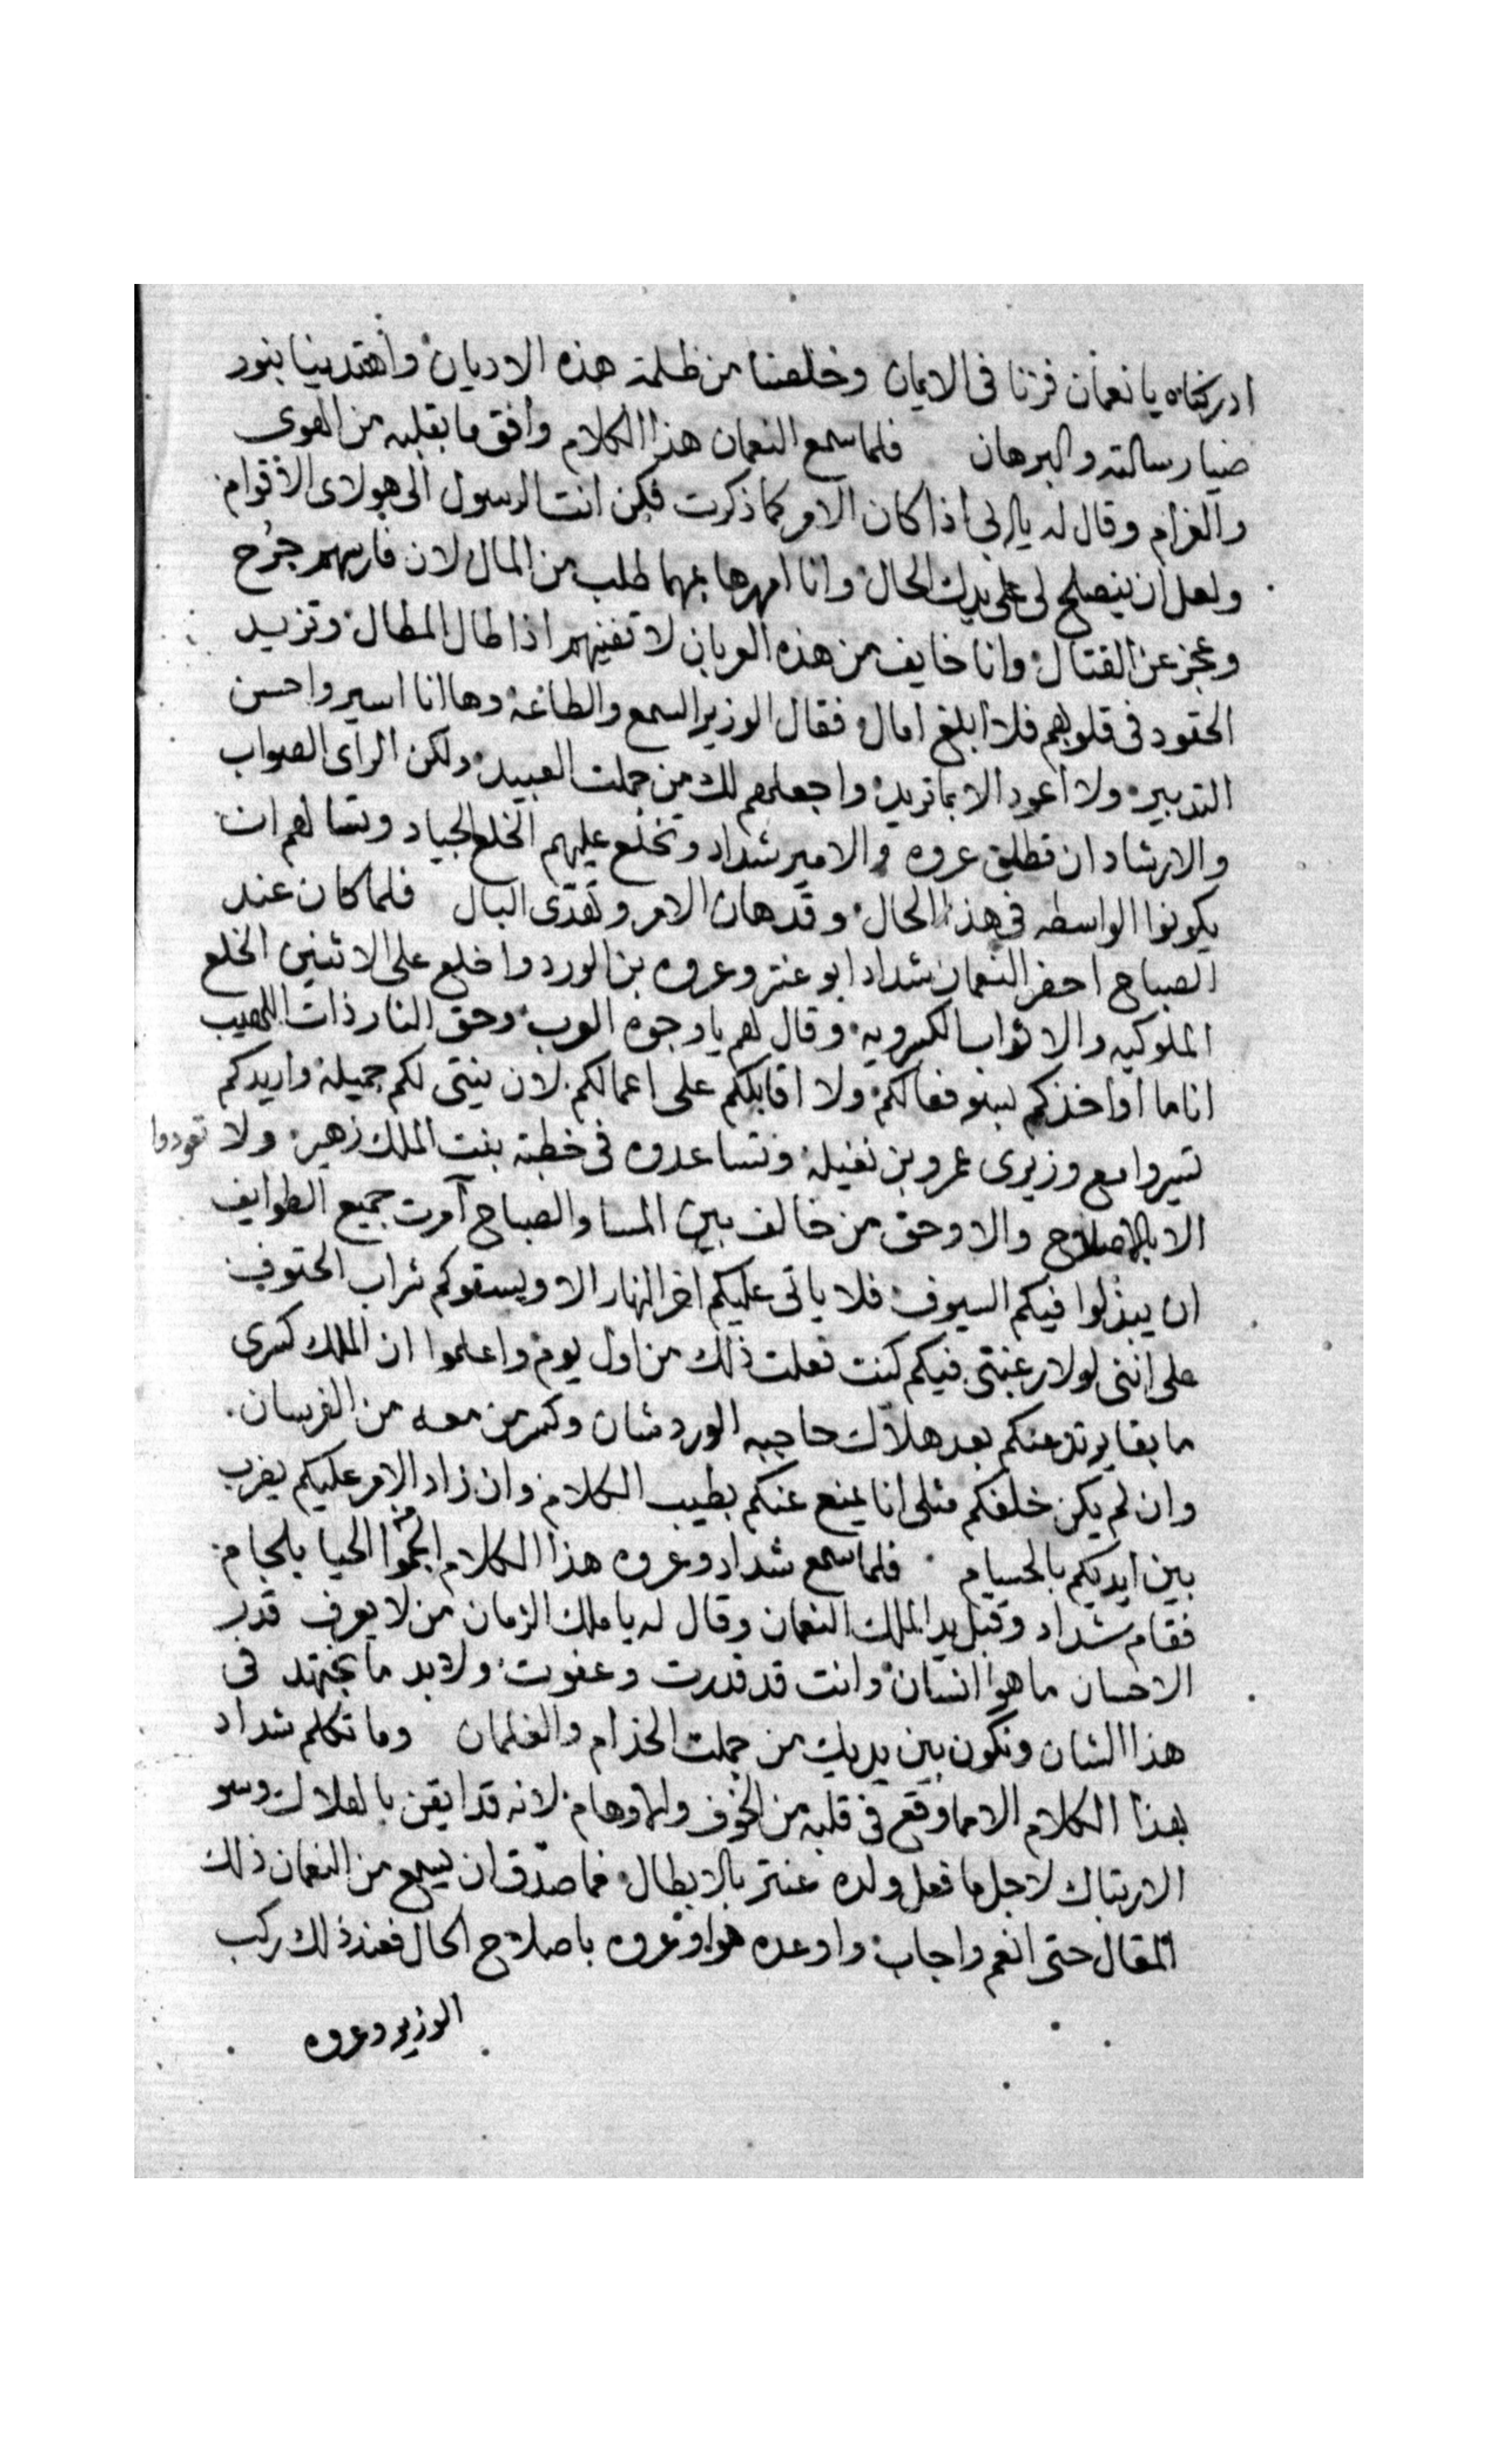 ادركناه يا نعمان فزنا فى الايمان وخلصنا من ظلمة هذه الاديان واهتدينا بنور
ضيا رسالته والبرهان فلما سمع النعمان هذا الكلام وافق ما بقلبه من الهوى
والغرام وقال له يا ابى اذا كان الامر كما ذكرت فكن انت الرسول الى هولاى الاقوام
ولعل ان ينصلح لى على يديك الحال وانا امهرها بمهما طلب من المال لان فارسهم جرح
وعجز عن القتال وانا خايف من هذه العربان لا تفنيهم اذا طال المطال وتزيد
الحقود فى قلوبهم فلا ابلغ امال فقال الوزير السمع والطاعة وها انا اسير واحسن
التدبير ولا اعود الا بما تريد واجعلهم لك من جملت العبيد ولكن الراى الصواب
والارشاد ان تطلق عروه والامير شداد وتخلع عليهم الخلع الجياد وتسالهم ان
يكونوا الواسطه فى هذا الحال وقد هان الامر وتهدى البال فلما كان عند
الصباح احضر النعمان شداد ابو عنتر وعروه بن الورد واخلع على الاثنين الخلع
الملوكيه والاثواب الكسرويه وقال لهم يا وجوه العرب وحق النار ذات اللهيب
انا ما اواخذكم بسو فعالكم ولا اقابلكم على اعمالكم لان نيتى لكم جميلة واريدكم
تسيروا مع وزيرى عمرو بن نفيلة وتساعدوه فى خطبة بنت الملك زهير ولا تعودوا
الا بالاصلاح والا وحق من خالف بين المسا والصباح آمرت جميع الطوايف
ان يبذلوا فيكم السيوف فلا ياتى عليكم اخر النهار الا ويسقوكم شراب الحتوف
على اننى لولا رغبتى فيكم كنت فعلت ذلك من اول يوم واعلموا ان الملك كسرى
ما بقا يرتد عنكم بعد هلاك حاجبه الوردشان وكسر من معه من الفرسان
وان لم يكن خلفكم مثلى انا يمنع عنكم بطيب الكلام وان زاد الامر عليكم يضرب
بين ايديكم بالحسام فلما سمع شداد وعروه هذا الكلام الجموا الحيا بلجام
فقام شداد وقبل يد الملك النعمان وقال له يا ملك الزمان من لا يعرف قدر
الاحسان ما هو انسان وانت قد قدرت وعفوت ولا بد ما نجتهد فى
هذا الشان ونكون بين يديك من جملت الخدام والغلمان وما تكلم شداد
بهذا الكلام الا مما وقع فى قلبه من الخوف والاوهام لانه قد ايقن بالهلاك وسو
الارتباك لاجل ما فعل ولده عنتر بالابطال فما صدق ان يسمع من النعمان ذلك
المقال حتى انعم واجاب واوعده هو وعروه باصلاح الحال فعند ذلك ركب
الوزير وعروه